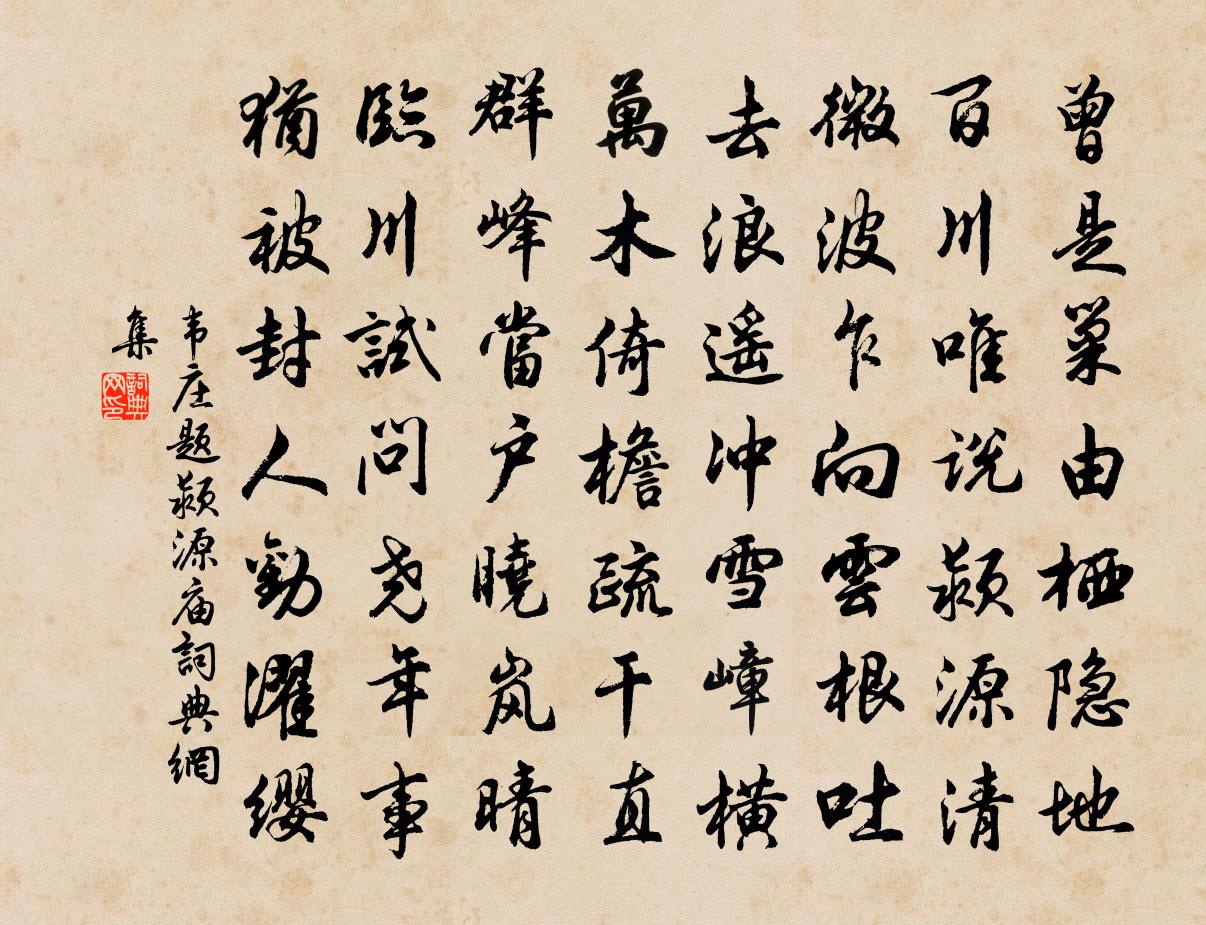 曾是巢由栖隐地
百川唯说颍源清
微波乍向雲根吐
去浪遥冲雪嶂横
萬木倚檐疏干直
群峰當户曉岚晴
臨川試問尧年事
猶被封人勸濯缨
韦庄题颍源庙詞典網
集
詞典网印